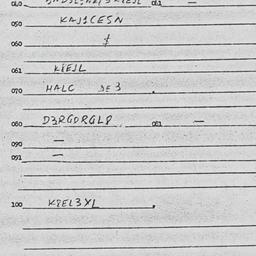 050 KAJ1CESN
060 $
061 KIEJL
070 HALC JE3
080 D3RGDRGL8 081 —
090 —
091 —
100 K8EL3YL